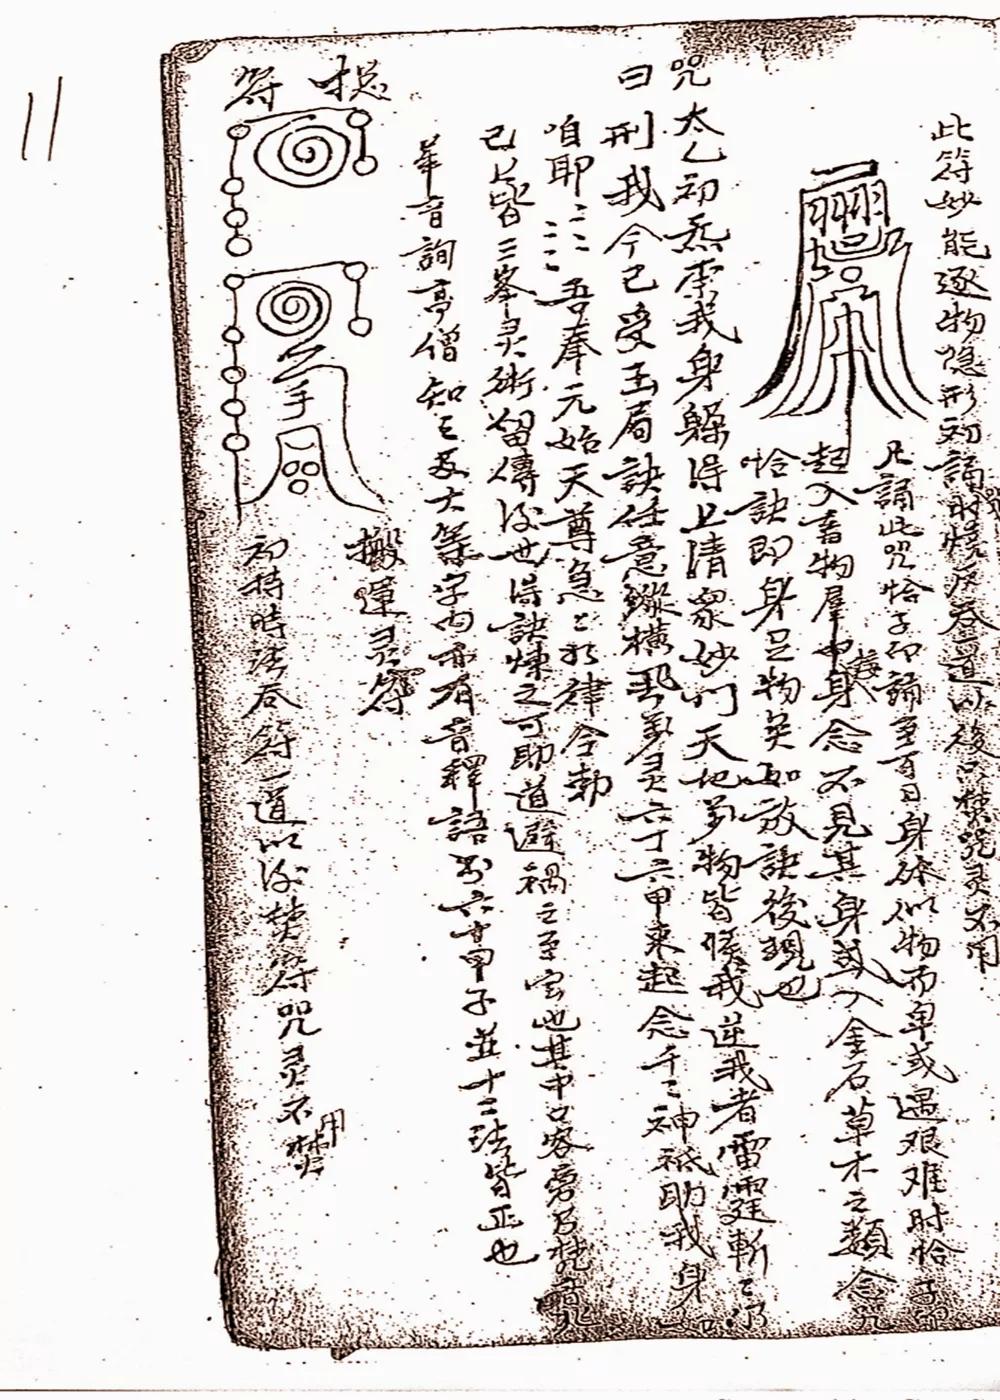 此符妙能逐物隐形初誦时焚灰吞一道以後只焚咒灵不用
凡誦此咒恰子印誦至百日身体似物而卑或遇艰难时恰子印
起入畜物群中身念不見其身或入金石草木之類念咒
恰訣即身呈物矣如放訣後現也
咒曰
太乙初炁秉我身躯得上清眾妙门天地万物皆候我逆我者雷霆斬
刑我今已受玉局訣任意縱橫 万灵六丁六甲来起念千二神祇助我身
咱耶 吾奉元始天尊急〻 律令勅
已上皆三峯灵術留傳後世得訣煉之可即道避禍之至宝也其中
華音詢高僧知之 大篆字内亦有音釋語另六十甲子並十二法皆正也
總符
搬運灵符
初持時法吞符一道以後焚符咒灵不用焚